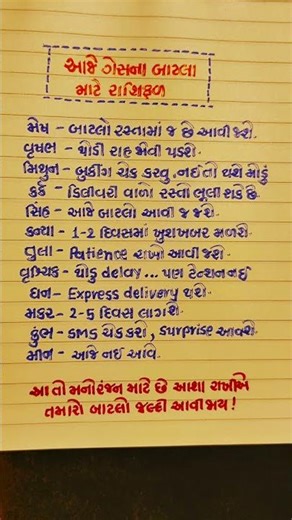 આજે ગેસના બાટલા
માટે રાશિફળ
મેષ - બાટલો રસ્તામાં જ છે આવી જશે.
વૃષભ - થોડી રાહ જોવી પડશે.
મિથુન - બુકીંગ ચેક કરવુ, નઈ તો થશે મોડું
કર્ક - ડિલીવરી વાળો રસ્તો ભૂલી શકે છે.
સિંહ - આજે બાટલો આવી જ જશે.
કન્યા - 1-2 દિવસમાં ખુશખબર મળશે.
તુલા - Patience રાખો આવી જશે.
વૃશ્ચિક - થોડુ delay... પણ ટેન્શન નઈ
ધન - Express delivery થશે.
મકર - 2-5 દિવસ લાગશે.
કુંભ - SMS ચેક કરો, surprise આવશે.
મીન - આજે નઈ આવે.
આ તો મનોરંજન માટે છે આશા રાખીએ
તમારો બાટલો જલ્દી આવી જાય!